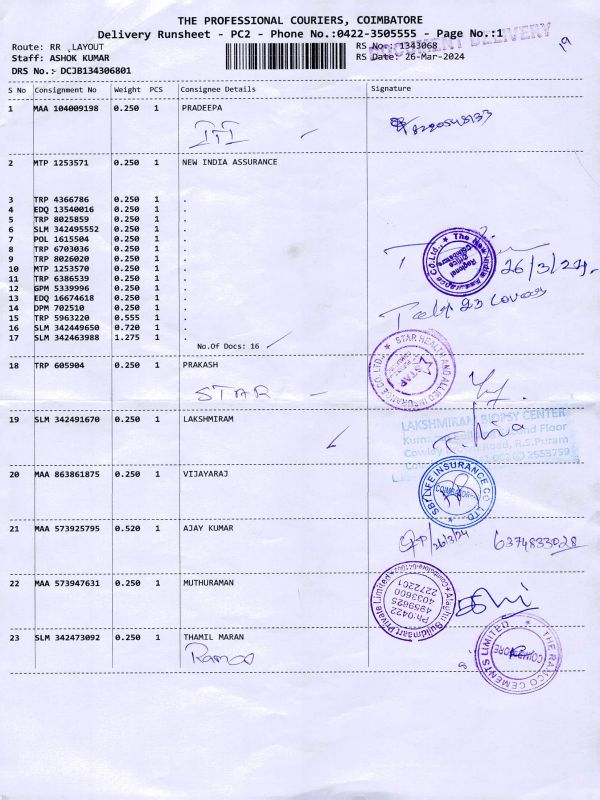 THE PROFESSIONAL COURIERS, COIMBATORE
Delivery Runsheet - PC2 - Phone No.:0422-3505555 - Page No.:1
DOCUMENT DELIVERY
Route: RR ,LAYOUT
RS No.: 1343068
Staff: ASHOK KUMAR
RS Date: 26-Mar-2024
DRS No.:- DCJB134306801
S No Consignment No Weight PCS Consignee Details Signature
1 MAA 104009198 0.250 1 PRADEEPA
2 MTP 1253571 0.250 1 NEW INDIA ASSURANCE
3 TRP 4366786 0.250 1 .
4 EDQ 13540016 0.250 1 .
5 TRP 8025859 0.250 1 .
6 SLM 342495552 0.250 1 .
7 POL 1615504 0.250 1 .
8 TRP 6703036 0.250 1 .
9 TRP 8026020 0.250 1 .
10 MTP 1253570 0.250 1 .
11 TRP 6386539 0.250 1 .
12 GPM 5339996 0.250 1 .
13 EDQ 16674618 0.250 1 .
14 DPM 702510 0.250 1 .
15 TRP 5963220 0.555 1 .
16 SLM 342449650 0.720 1 .
17 SLM 342463988 1.275 1 .
The New India Assurance Co. Ltd.,
Regional Office
Coimbatore
26/3/24.
No.Of Docs: 16
18 TRP 605904 0.250 1 PRAKASH
STAR
STAR HEALTH AND ALLIED INSURANCE CO. LTD.,
STAR
19 SLM 342491670 0.250 1 LAKSHMIRAM
LAKSHMIRAM BIOPSY CENTER
Road, R.S.Puram
2558759
20 MAA 863861875 0.250 1 VIJAYARAJ
SBI LIFE INSURANCE CO. LTD.
COIMBATORE
21 MAA 573925795 0.520 1 AJAY KUMAR
26/3/24 6374833028
22 MAA 573947631 0.250 1 MUTHURAMAN
Alagiri Buildmaart Private Limited
Ph:0422
4959625
4033600
2272201
23 SLM 342473092 0.250 1 THAMIL MARAN
Ramco
THE RAMCO CEMENTS LIMITED